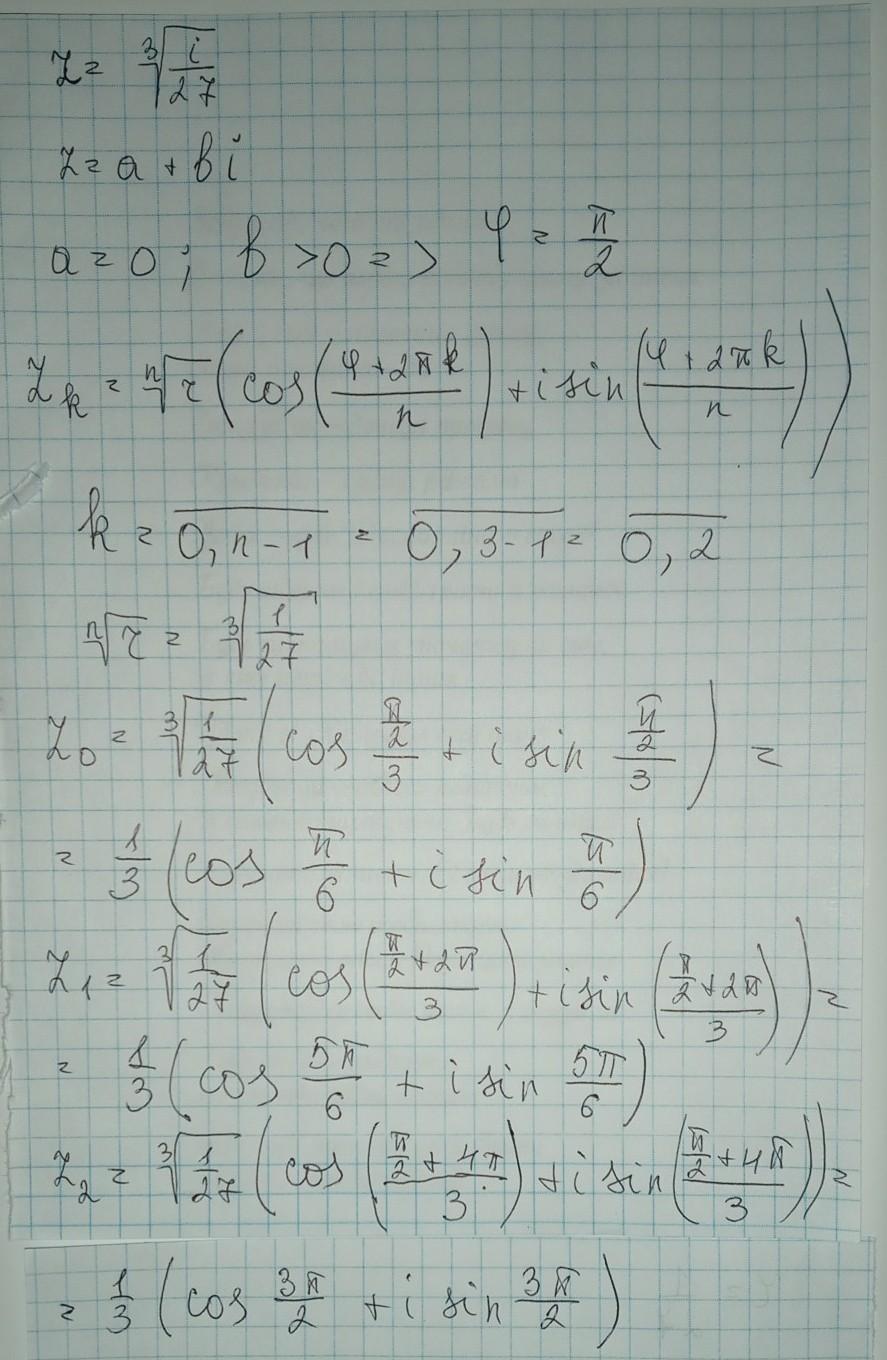 z = ∛(i/27)
z = a + bi
a = 0 ; b > 0 => φ = π/2
z_k = ⁿ√r (cos((φ + 2πk)/n) + i sin((φ + 2πk)/n))
k = 0, n - 1 = 0, 3 - 1 = 0, 2
ⁿ√r = ∛(1/27)
z_0 = ∛(1/27) (cos (π/2)/3 + i sin (π/2)/3) =
= 1/3 (cos π/6 + i sin π/6)
z_1 = ∛(1/27) (cos((π/2 + 2π)/3) + i sin((π/2 + 2π)/3)) =
= 1/3 (cos 5π/6 + i sin 5π/6)
z_2 = ∛(1/27) (cos((π/2 + 4π)/3) + i sin((π/2 + 4π)/3)) =
= 1/3 (cos 3π/2 + i sin 3π/2)